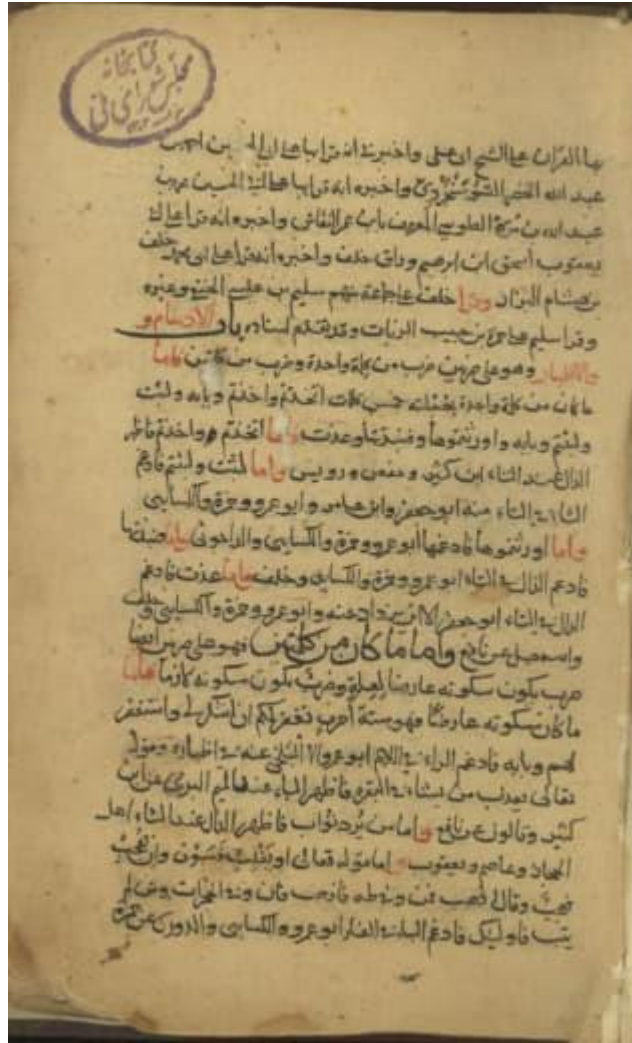 كتابخانه
مجلس شورای ملی
بها القران على الشيخ ابى على واخبرنى انه قرا بها على ابى الحسين احمد بن
عبد الله الخضر السوسنجردى واخبره انه قرا بها على
عبد الله بن الطوسى المعروف بابن عمر النقاش واخبره انه قرا على
يعقوب اسحق ابن ابرهيم وراق خلف واخبره انه قرا على ابى محمد خلف
بن هشام البزاز وقرا خلف على جماعة منهم سليم بن عيسى الحنفى وغيره
وقرا سليم على حمزة بن حبيب الزيات وقد تقدم اسناده باب الادغام و
والاظهار وهو على ضربين ضرب من كلمة واحدة وضرب من كلمتين فاما
ما كان من كلمة واحدة خمس كلمات اتخذتم واخذتم وبابه ولبثت
ولبثتم وبابه واورثتموها وفنبذتها وعذت فاما اتخذتم واخذتم فاظهر
الذال عند التاء ابن كثير وحفص ورويس واما لبثت ولبثتم فادغم
الثاء فى التاء منه ابو جعفر وابن عامر وابو عمرو وحمزة والكسايى
واما اورثتموها فادغمها ابو عمرو وحمزة والكسايى والداجونى واما فنبذتها
فادغم الذال فى التاء ابو عمرو وحمزة والكسايى وخلف واما عذت فادغم
الذال فى التاء ابو جعفر الا وابو عمرو وحمزة والكسايى وخلف
واسمعيل عن نافع واما ما كان من كلمتين فهو على ضربين ايضا
ضرب يكون سكونه عارضا لعلة وضرب يكون سكونه لازما فاما
ما كان سكونه عارضا فهو ستة احرف نغفر لكم ان اشكر لى واستغفر
لهم وبابه فادغم الراء فى اللام ابو عمرو الا عنه فى اظهاره وقوله
تعالى يعذب من يشاء فى البقرة فاظهر الباء عند الميم عن ابن
كثير وقالون عن نافع واما من يرد ثواب فاظهر الدال عند الثاء اهل
الحجاز وعاصم ويعقوب واما قوله تعالى او يغلب فسوف وان تعجب
فعجب وقال اذهب فمن وفى طه فاذهب فان وفى الحجرات ومن لم
يتب فاولئك فادغم الباء فى الفاء ابو عمرو والكسايى والدورى عن حمزة